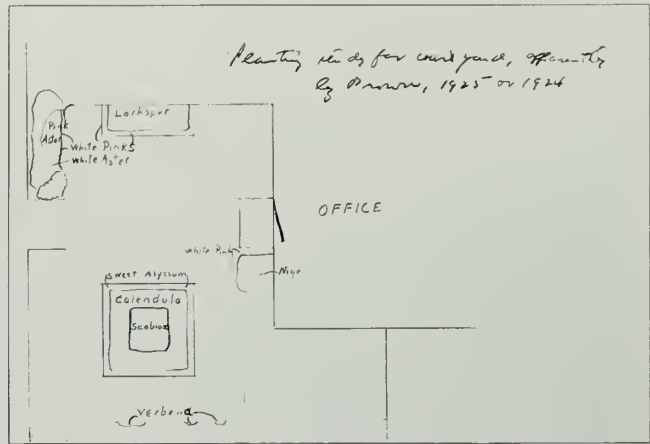 Planting study for courtyard, apparently
by Brown, 1925 or 1924
Larkspur
Pink
Aster
White Pinks
White Aster
OFFICE
White Pink
Nige
Sweet Alyssum
Calendula
Scabiosa
Verbena